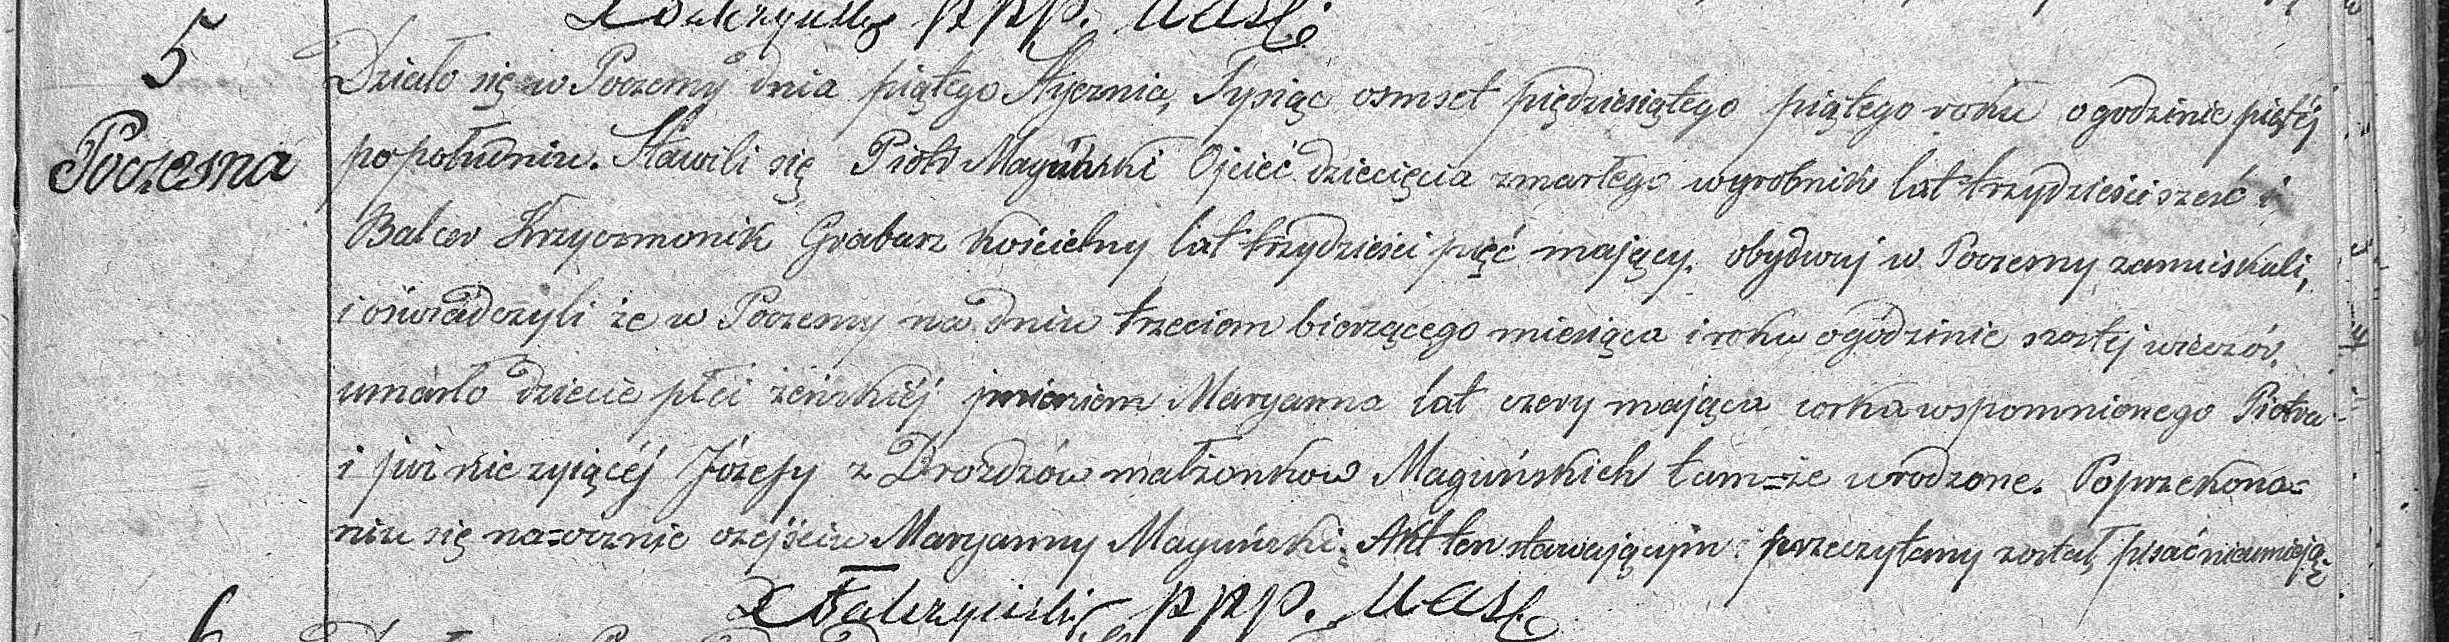 5
Poczesna
Działo się w Poczesny dnia piątego Stycznia, Tysiąc osmset piędziesiątego piątego roku o godzinie piątéj
popołudniu. Stawili się Piotr Maguński Ojciéc dziecięcia zmarłego wyrobnik lat trzydzieści sześć i
Balcer Grabarz kościelny lat trzydzieści pięć mający. obydwaj w Poczesny zamieszkali,
i oświadczyli że w Poczesny na dniu trzeciem bierzącego miesiąca i roku o godzinie szóstéj wieczór.
umarło dziecie płci żeńskiéj jmieniem Maryanna lat cztery mająca corka wspomnionego Piotra
i już nie żyiącéj Józefy z Drozdzów małżonkow Maguńskich tam=że urodzone. Po przekona=
niu się na=ocznie o zejściu Maryanny Maguński. Akt ten stawającym przeczytany został, pisać nieumieją=
ppp.